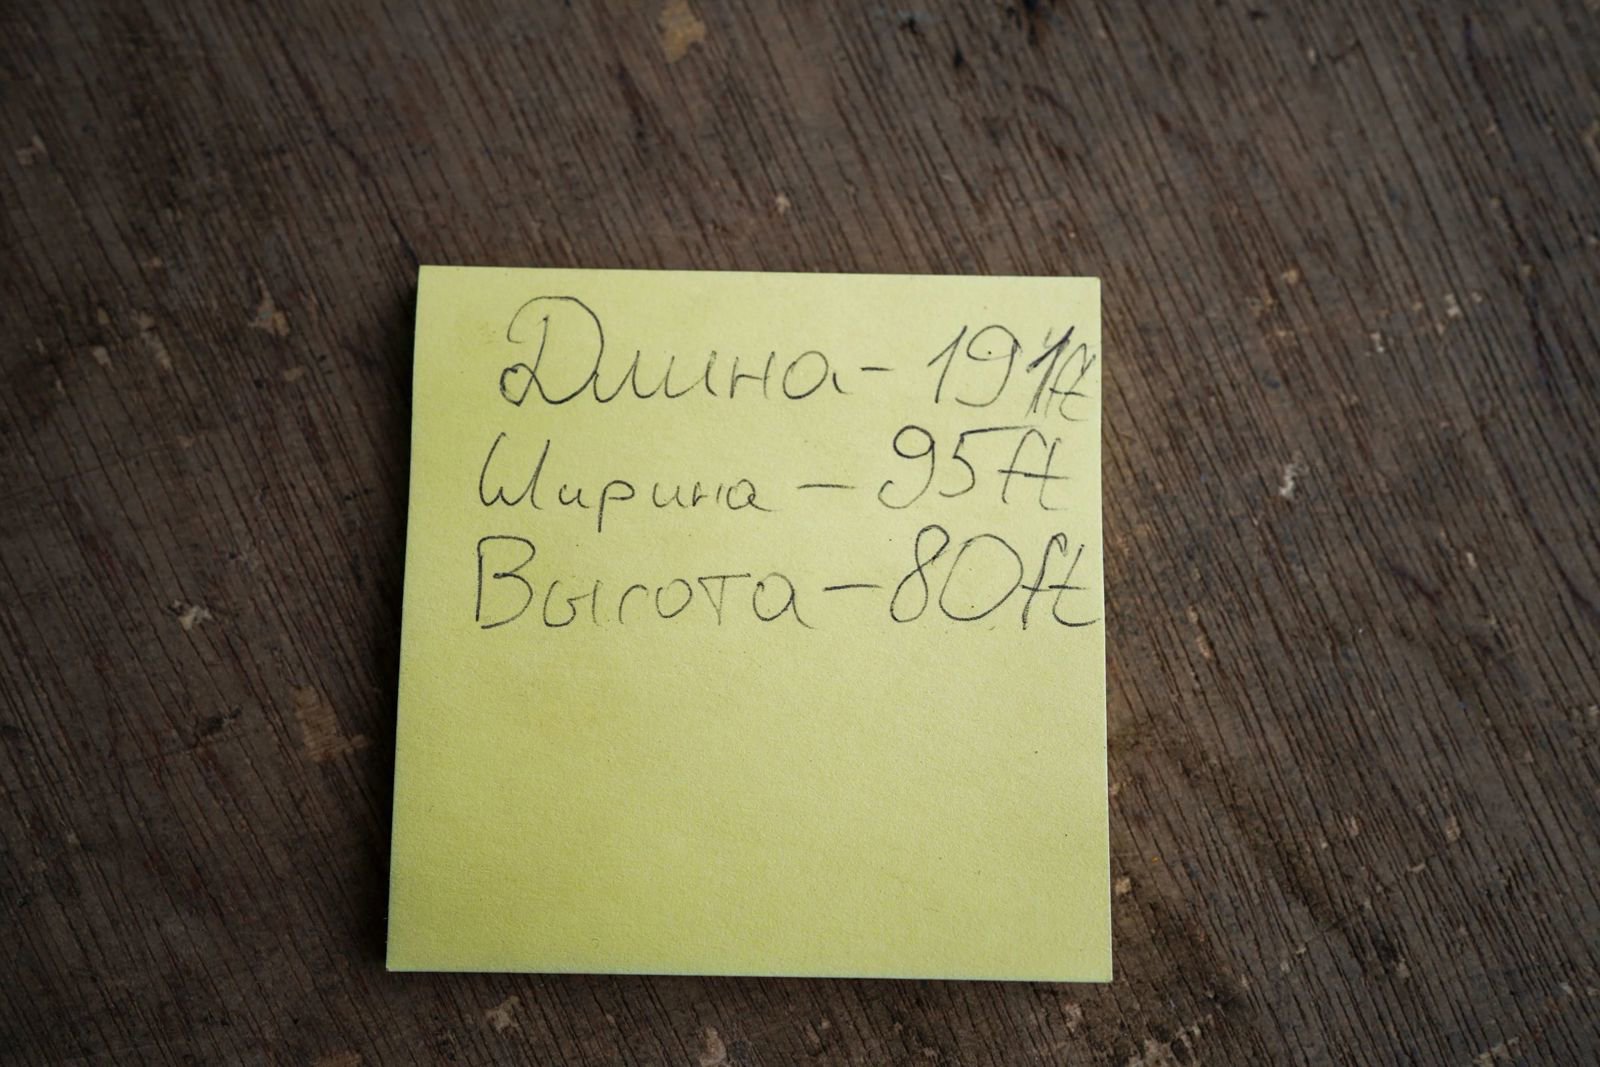 Длина - 191ft
Ширина - 95ft
Высота - 80ft